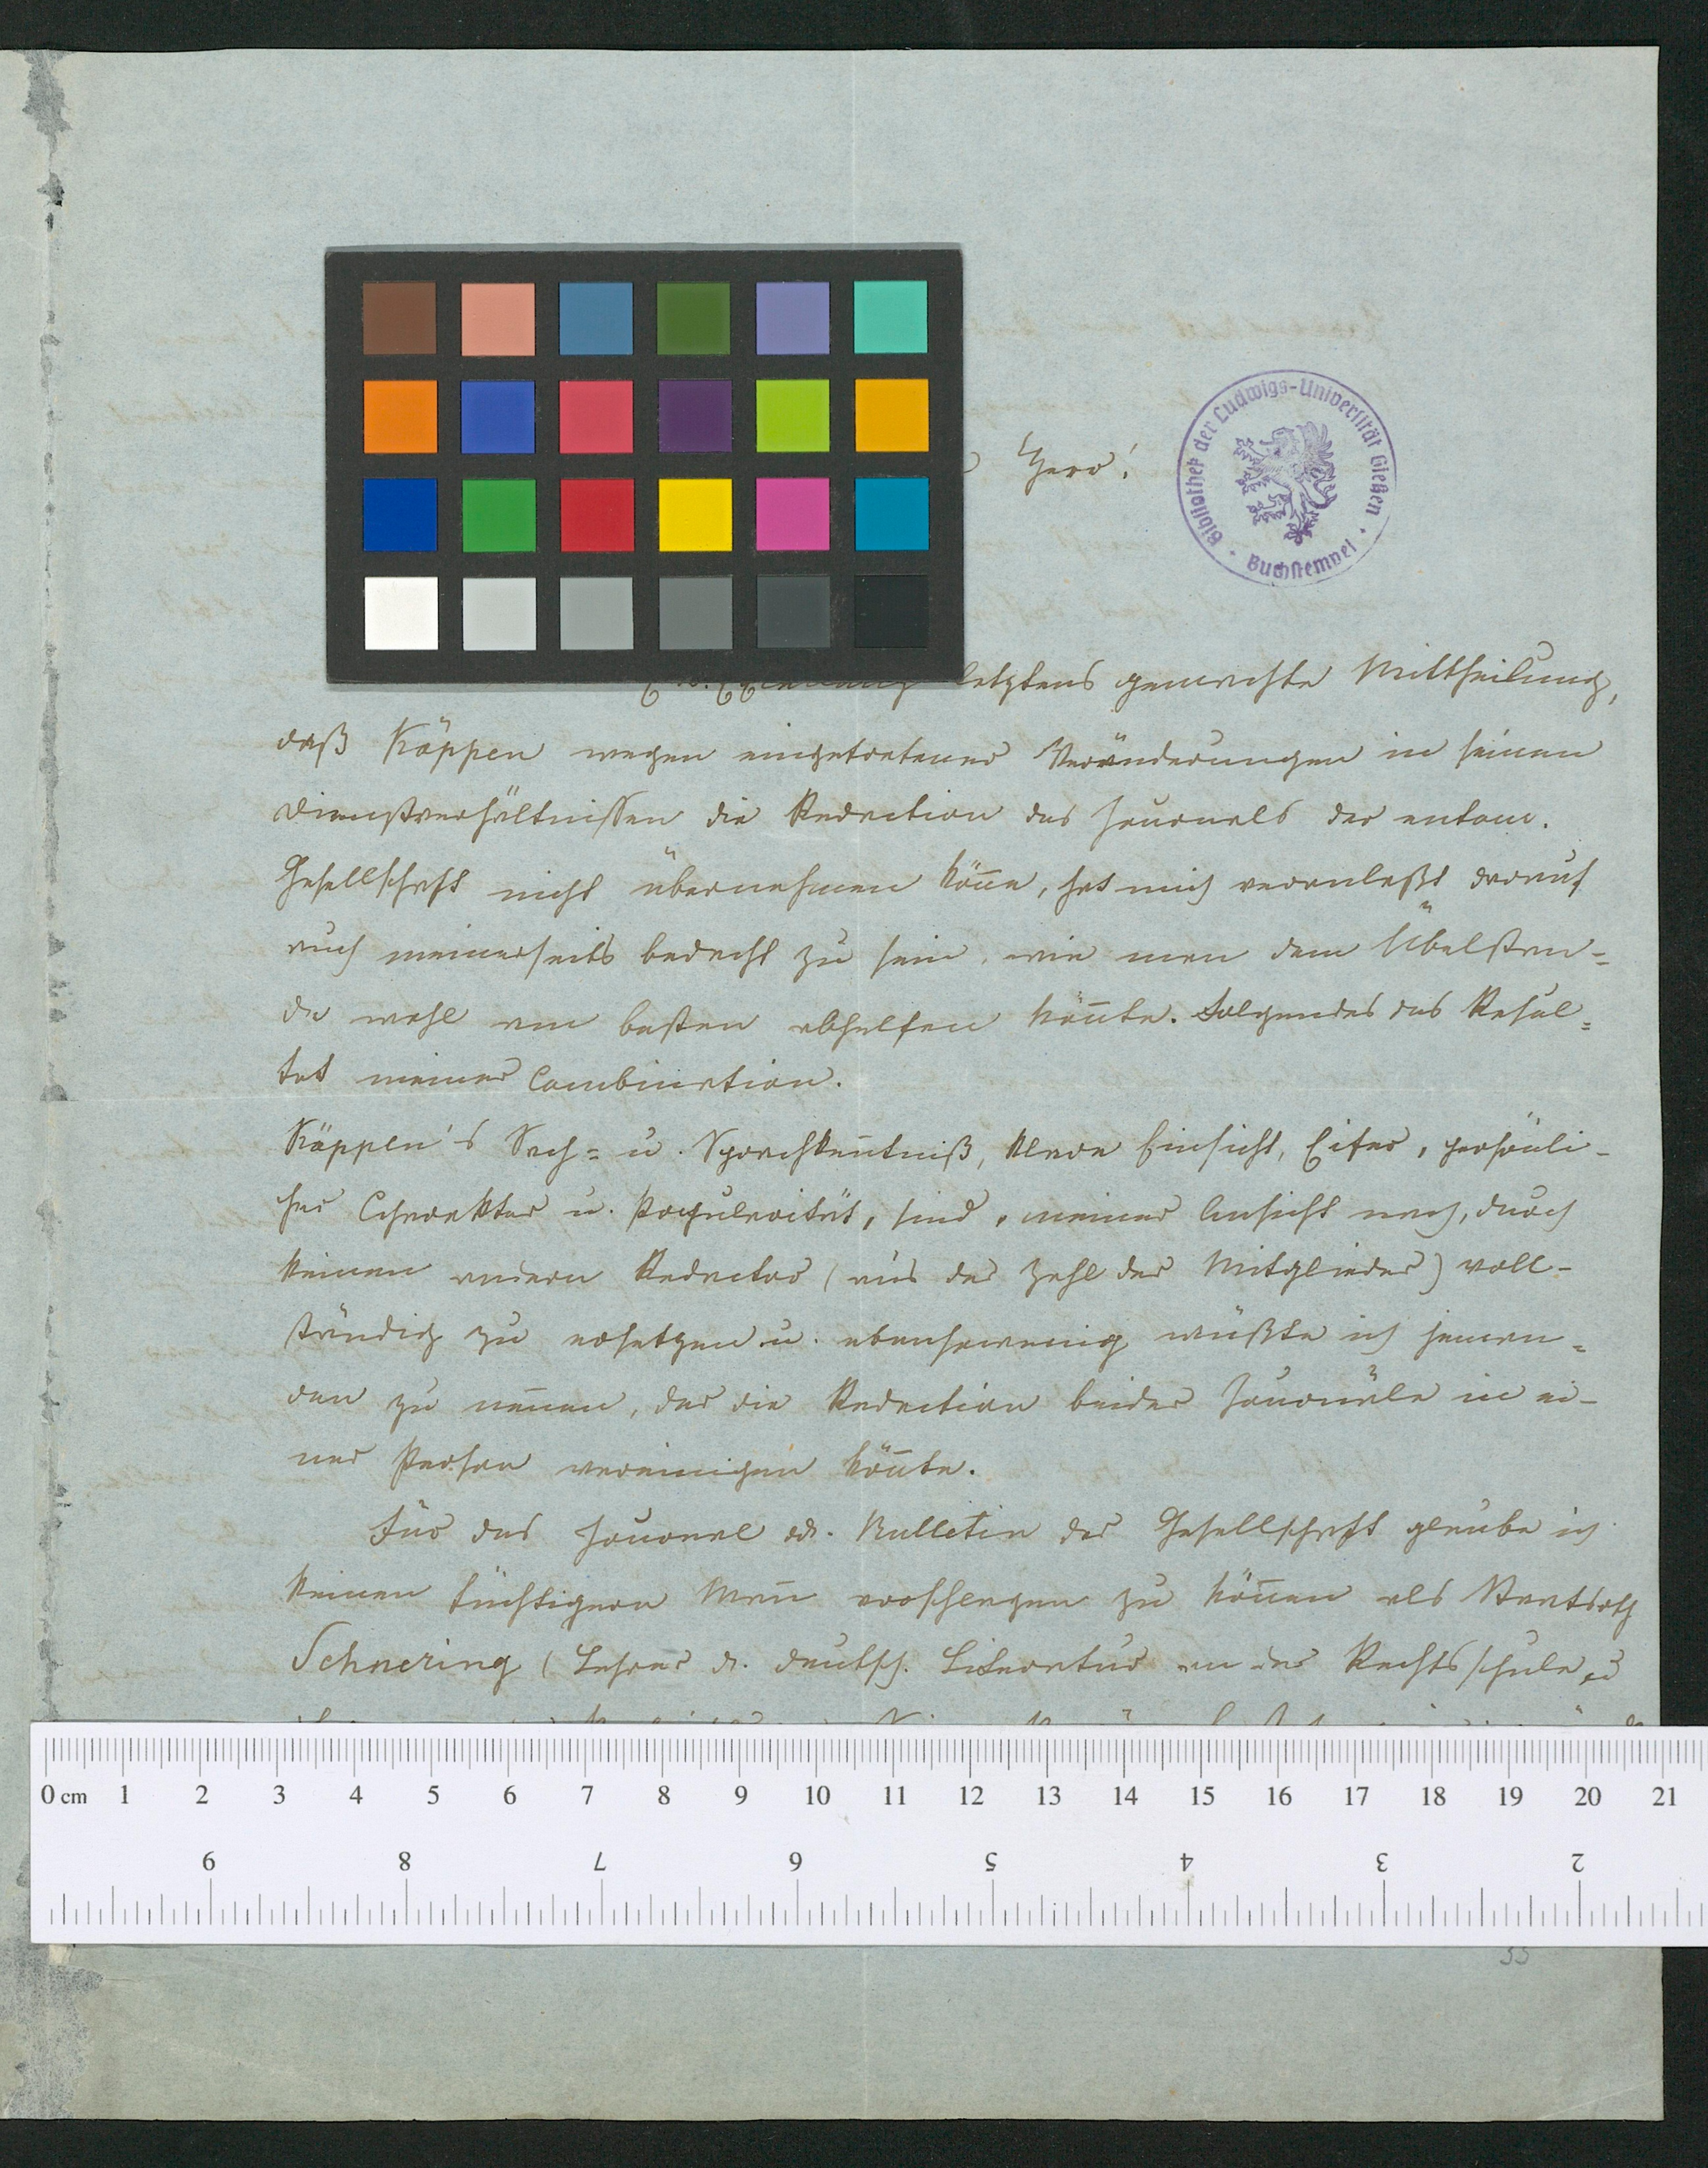 Herr!
Bibliothek der Ludwigs-Universität Gießen
Buchstempel
letztens gemachte Mittheilung,
daß Köppen wegen eingetretener Veränderungen in seinen
Dienstverhältnissen die Redaction des Journals der entom.
Gesellschaft nicht übernehmen köñe, hat mich veranlaßt darauf
auch meinerseits bedacht zu sein, wie man dem Übelstan=
de wohl am besten abhelfen köñte. Folgendes das Resul=
tat meiner Combination.
Köppen's Sach= u. Sprachkeñtniß, klare Einsicht, Eifer, persönli-
cher Charakter u. Popularität, sind, meiner Ansicht nach, durch
keinen andern Redactor (aus der Zahl der Mitglieder) voll-
ständig zu ersetzen u. ebensowenig wüßte ich jeman=
den zu neñen, der die Redaction beider Journäle in ei-
ner Person vereinigen köñte.
Für das Journal od. Bulletin der Gesellschaft glaube ich
keinen tüchtigern Mañ vorschlagen zu köñen als Staatsrath
Schnering (Lehrer d. deutsch. Literatur an der Rechtsschule,
0 cm 1 2 3 4 5 6 7 8 9 10 11 12 13 14 15 16 17 18 19 20 21
9 8 7 6 5 4 3 2